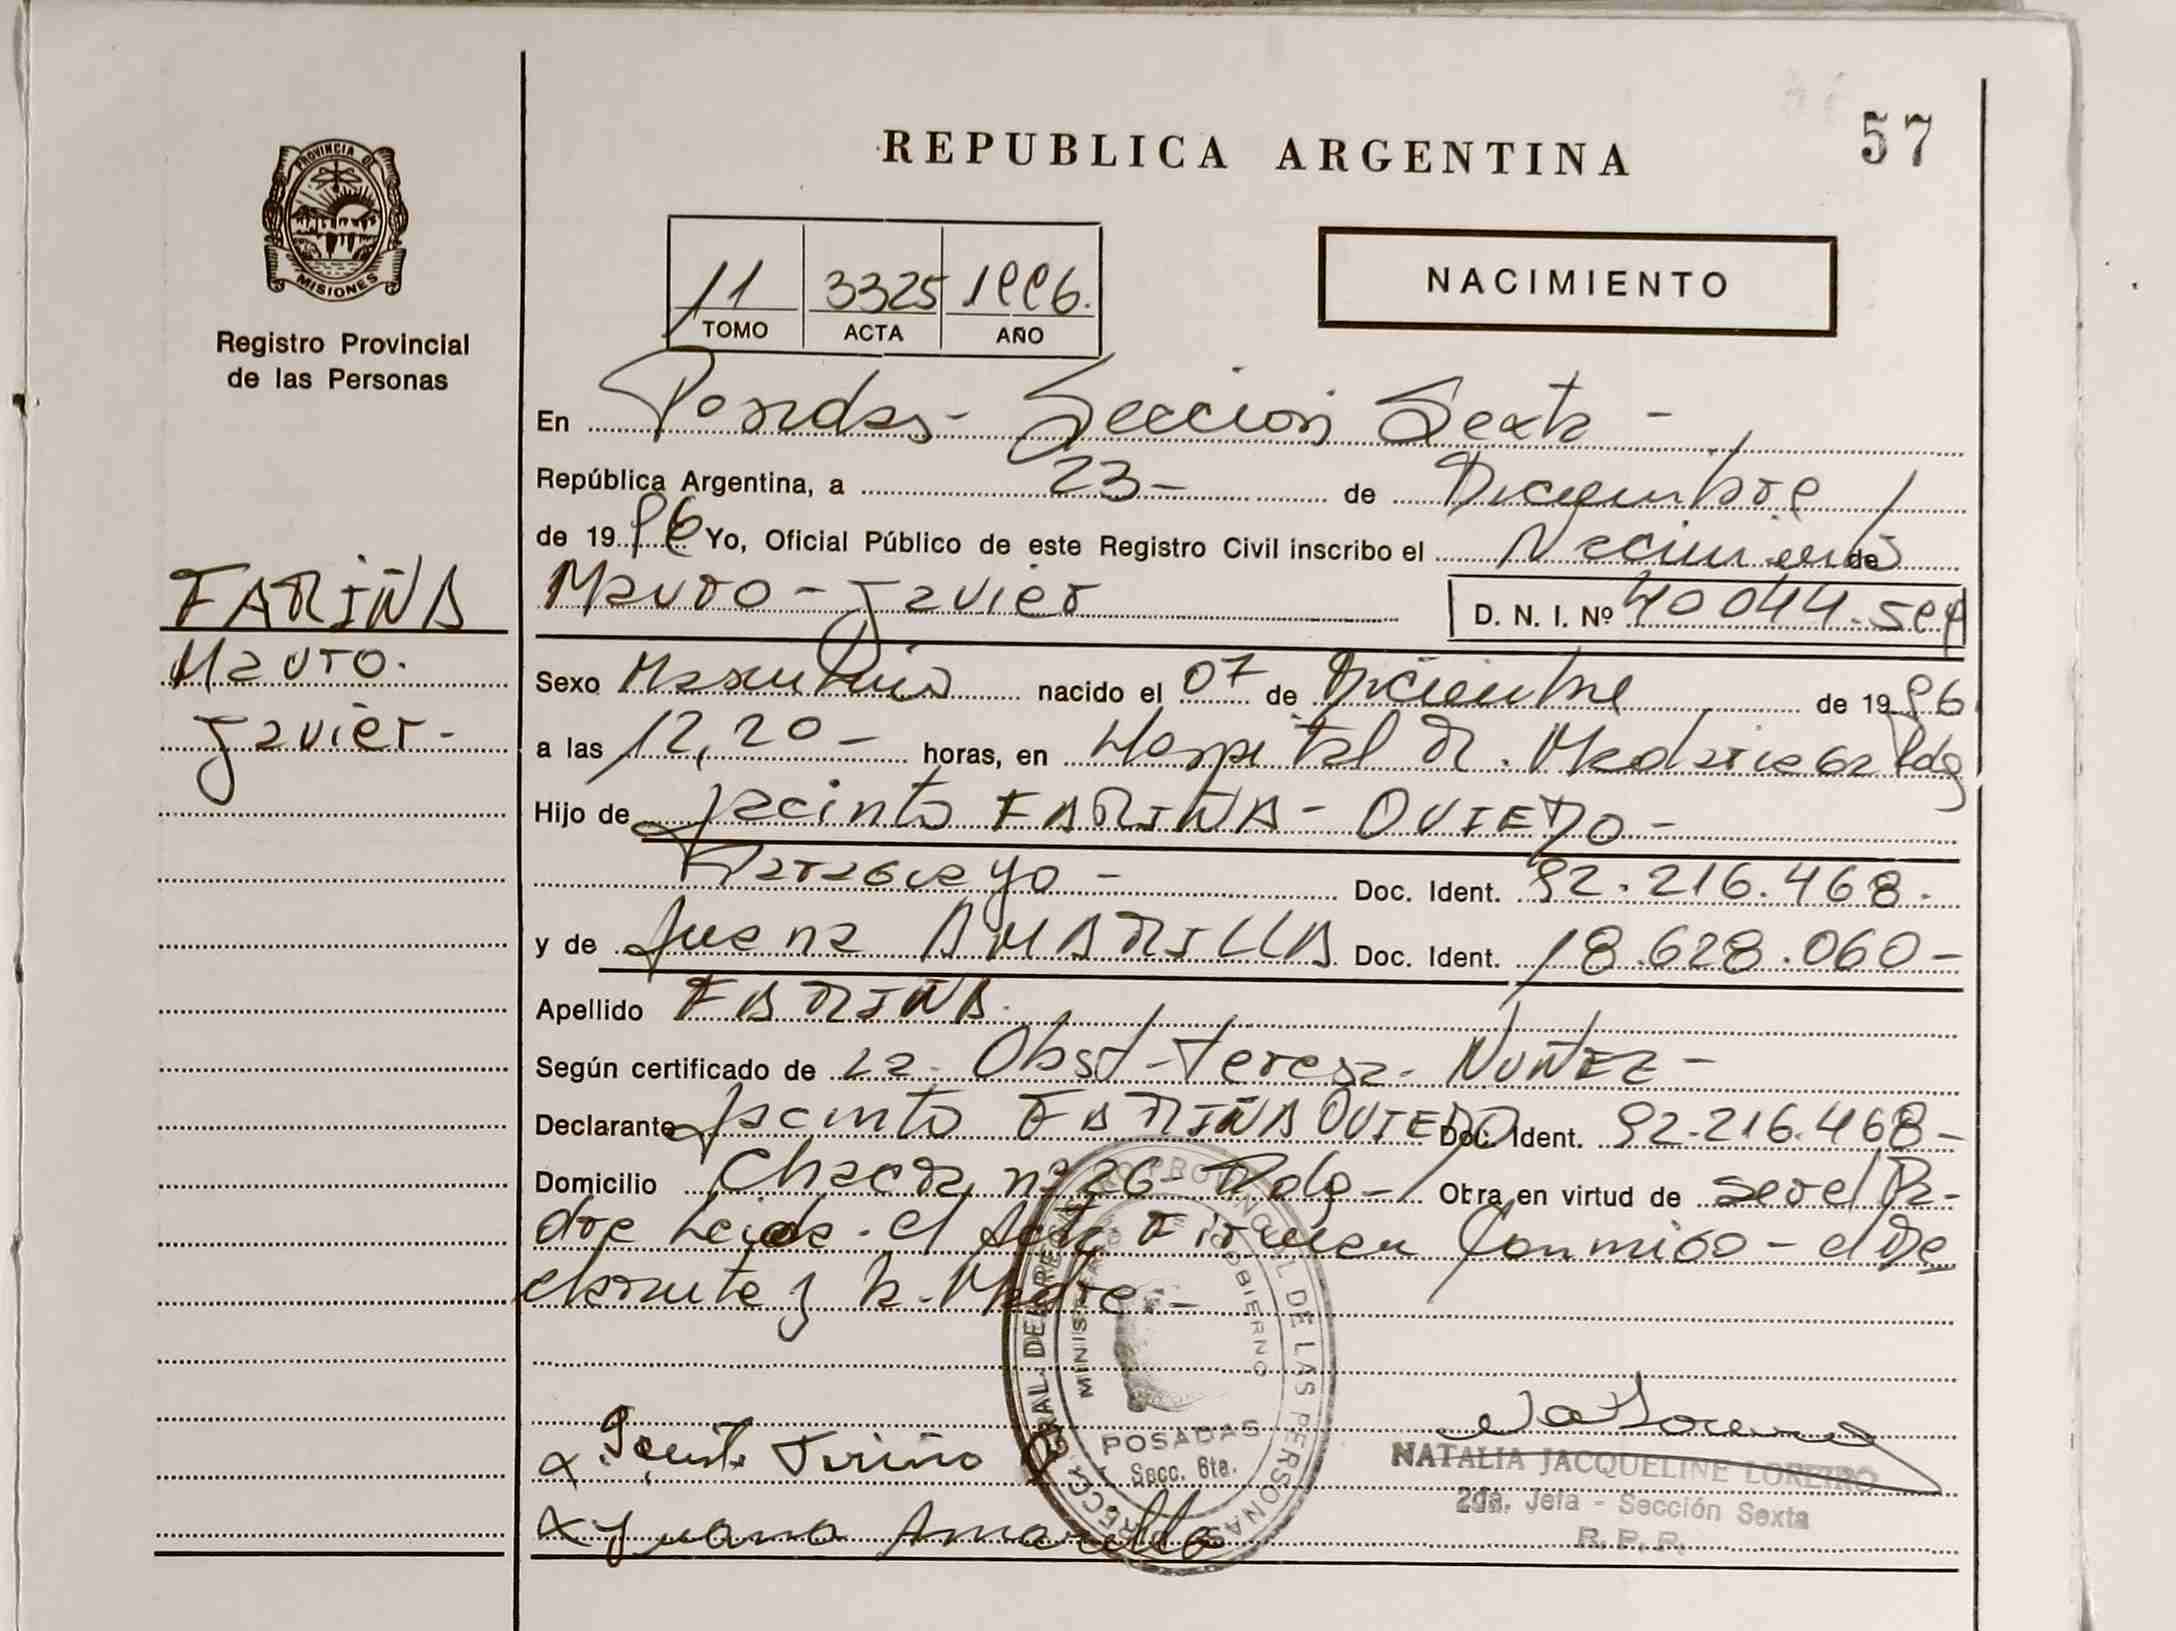 57
REPUBLICA ARGENTINA
PROVINCIA DE
MISIONES
Registro Provincial
de las Personas
NACIMIENTO
11 3325 1996.
TOMO ACTA AÑO
En Posadas - Sección Sexta -
República Argentina, a 23 - de Diciembre
de 1996 Yo, Oficial Público de este Registro Civil inscribo el Nacimiento de
FARIÑA
Mauro - Javier D. N. I. Nº 40044.599
Mauro.
Javier -
Sexo Masculino nacido el 07 de Diciembre de 1996
a las 12,20 - horas, en Hospital Dr. Madariaga Pdas
Hijo de Jacinto FARIÑA - OVIEDO -
Paraguayo - Doc. Ident. 92.216.468.
y de Juana AMARILLA Doc. Ident. 18.628.060 -
Apellido FARIÑA.
Según certificado de La - Obst - Teresa - NUÑEZ -
Declarante Jacinto FARIÑA OVIEDO Doc. Ident. 92.216.468 -
Domicilio Chacra nº 26 - Pdas - Obra en virtud de ser el Pa-
dre Leida - el Acta Firman Conmigo - el De
clarante y la - Madre -
POSADAS
Secc. 6ta.
Jacinto Fariña O
Juana Amarilla
NATALIA JACQUELINE LOREIRO
2da. Jefa - Sección Sexta
R. P. P.